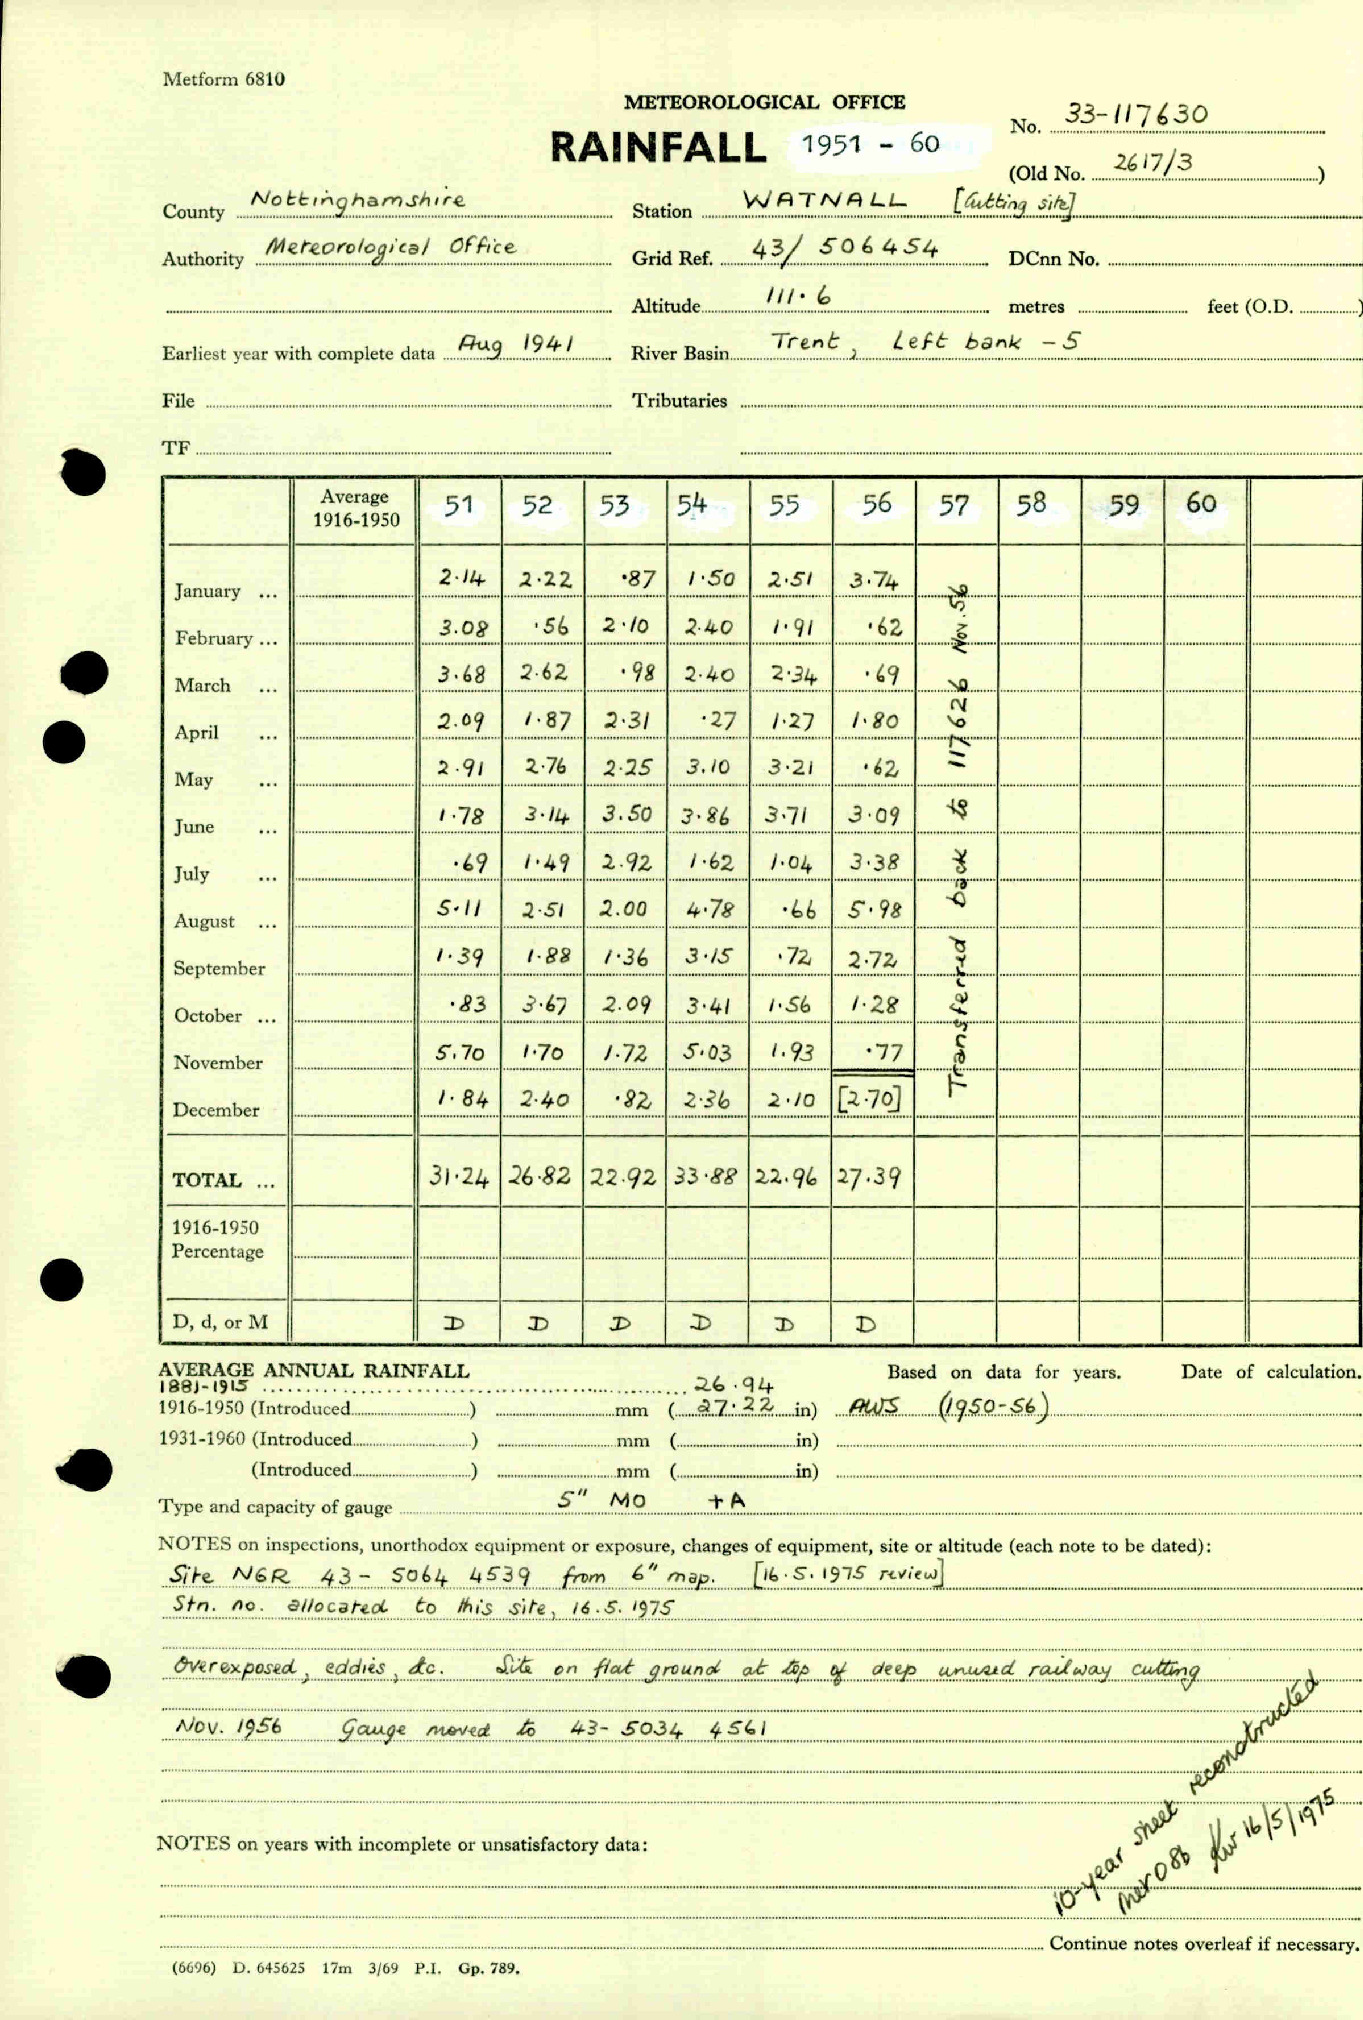 Metform 6810
METEOROLOGICAL OFFICE
RAINFALL 1951 - 60
No. 33-117630
(Old No. 2617/3)
County Nottinghamshire
Station WATNALL [Cutting site]
Authority Meteorological Office
Grid Ref. 43/ 506454 DCnn No.
Altitude 111.6 metres feet (O.D. )
Earliest year with complete data Aug 1941
River Basin Trent, Left bank - 5
File Tributaries
TF
Average 1916-1950 51 52 53 54 55 56 57 58 59 60
January ... 2.14 2.22 .87 1.50 2.51 3.74
February ... 3.08 .56 2.10 2.40 1.91 .62
March ... 3.68 2.62 .98 2.40 2.34 .69
April ... 2.09 1.87 2.31 .27 1.27 1.80
May ... 2.91 2.76 2.25 3.10 3.21 .62
June ... 1.78 3.14 3.50 3.86 3.71 3.09
July ... .69 1.49 2.92 1.62 1.04 3.38
August ... 5.11 2.51 2.00 4.78 .66 5.98
September 1.39 1.88 1.36 3.15 .72 2.72
October ... .83 3.67 2.09 3.41 1.56 1.28
November 5.70 1.70 1.72 5.03 1.93 .77
December 1.84 2.40 .82 2.36 2.10 [2.70]
Transferred back to 117626 Nov. 56
TOTAL ... 31.24 26.82 22.92 33.88 22.96 27.39
1916-1950
Percentage
D, d, or M D D D D D D
AVERAGE ANNUAL RAINFALL Based on data for years. Date of calculation.
1881-1915 26.94
1916-1950 (Introduced ) mm ( 27.22 in) AWS (1950-56)
1931-1960 (Introduced ) mm ( in)
(Introduced ) mm ( in)
Type and capacity of gauge 5" MO + A
NOTES on inspections, unorthodox equipment or exposure, changes of equipment, site or altitude (each note to be dated):
Site NGR 43 - 5064 4539 from 6" map. [16.5.1975 review]
Stn. no. allocated to this site, 16.5.1975
Overexposed, eddies, &c. Site on flat ground at top of deep unused railway cutting
Nov. 1956 Gauge moved to 43- 5034 4561
10-year sheet reconstructed
Met O 8b KW 16/5/1975
NOTES on years with incomplete or unsatisfactory data:
Continue notes overleaf if necessary.
(6696) D. 645625 17m 3/69 P.I. Gp. 789.